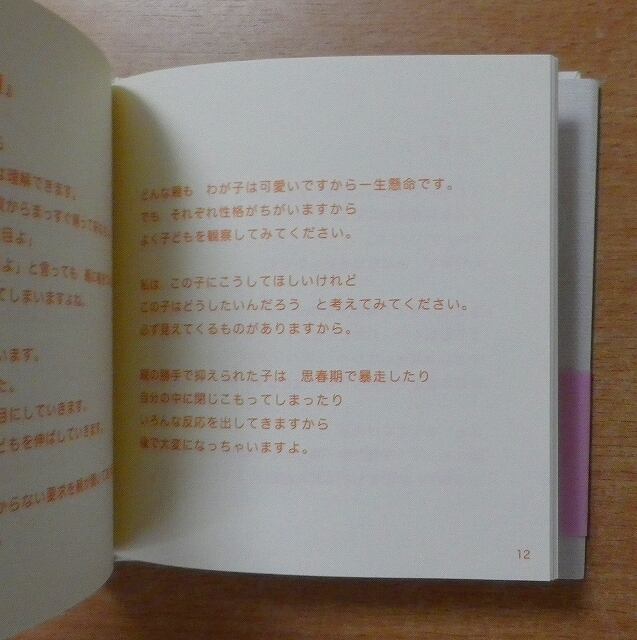 」
も
な理解できます。
からまっすぐ帰って
目よ」
よ」と言っても
てしまいますよね。
います。
た。
目にしていきます。
どもを伸ばしていきます。
からない要求を
どんな親も　わが子は可愛いですから一生懸命です。
でも　それぞれ性格がちがいますから
よく子どもを観察してみてください。
私は　この子にこうしてほしいけれど
この子はどうしたいんだろう　と考えてみてください。
必ず見えてくるものがありますから。
親の勝手で抑えられた子は　思春期で暴走したり
自分の中に閉じこもってしまったり
いろんな反応を出してきますから
後で大変になっちゃいますよ。
12